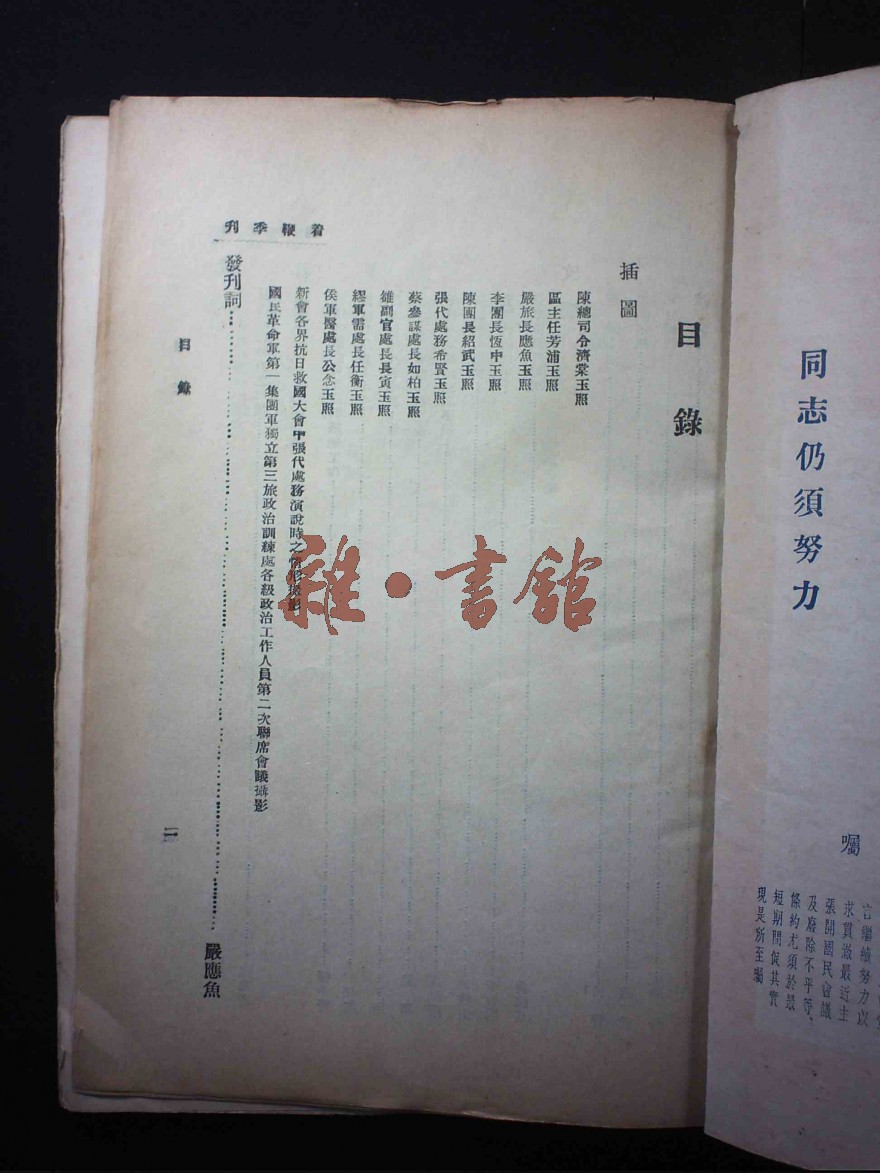 同志仍須努力
囑
言繼續努力以
求貫澈最近主
張開國民會議
及廢除不平等
條約尤須於最
短期間促其實
現是所至囑
目錄
插圖
陳總司令濟棠玉照
區主任芳浦玉照
嚴旅長應魚玉照
李團長恆中玉照
陳團長紹武玉照
張代處務希賢玉照
蔡參謀處長如柏玉照
雒副官處長長寅玉照
繆軍需處長任衡玉照
侯軍醫處長公念玉照
新會各界抗日救國大會中張代處務演說時之情形攝影
國民革命軍第一集團軍獨立第三旅政治訓練處各級政治工作人員第二次聯席會議攝影
發刊詞……………………嚴應魚
着鞭季刊
目錄
雜·書館